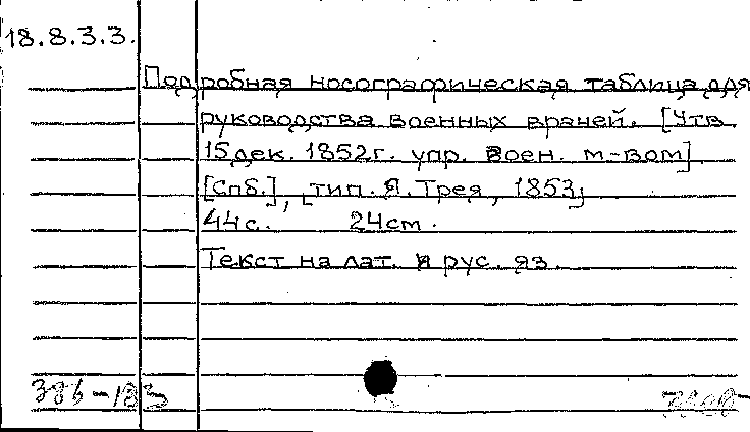 18.8.3.3.
Подробная носографическая таблица для
руководства военных врачей. [Утв.
15 дек. 1852 г. упр. воен. м-вом]
[Спб.], [тип. Я. Трея, 1853]
44 с. 24 см.
Текст на лат. и рус. яз.
386-183